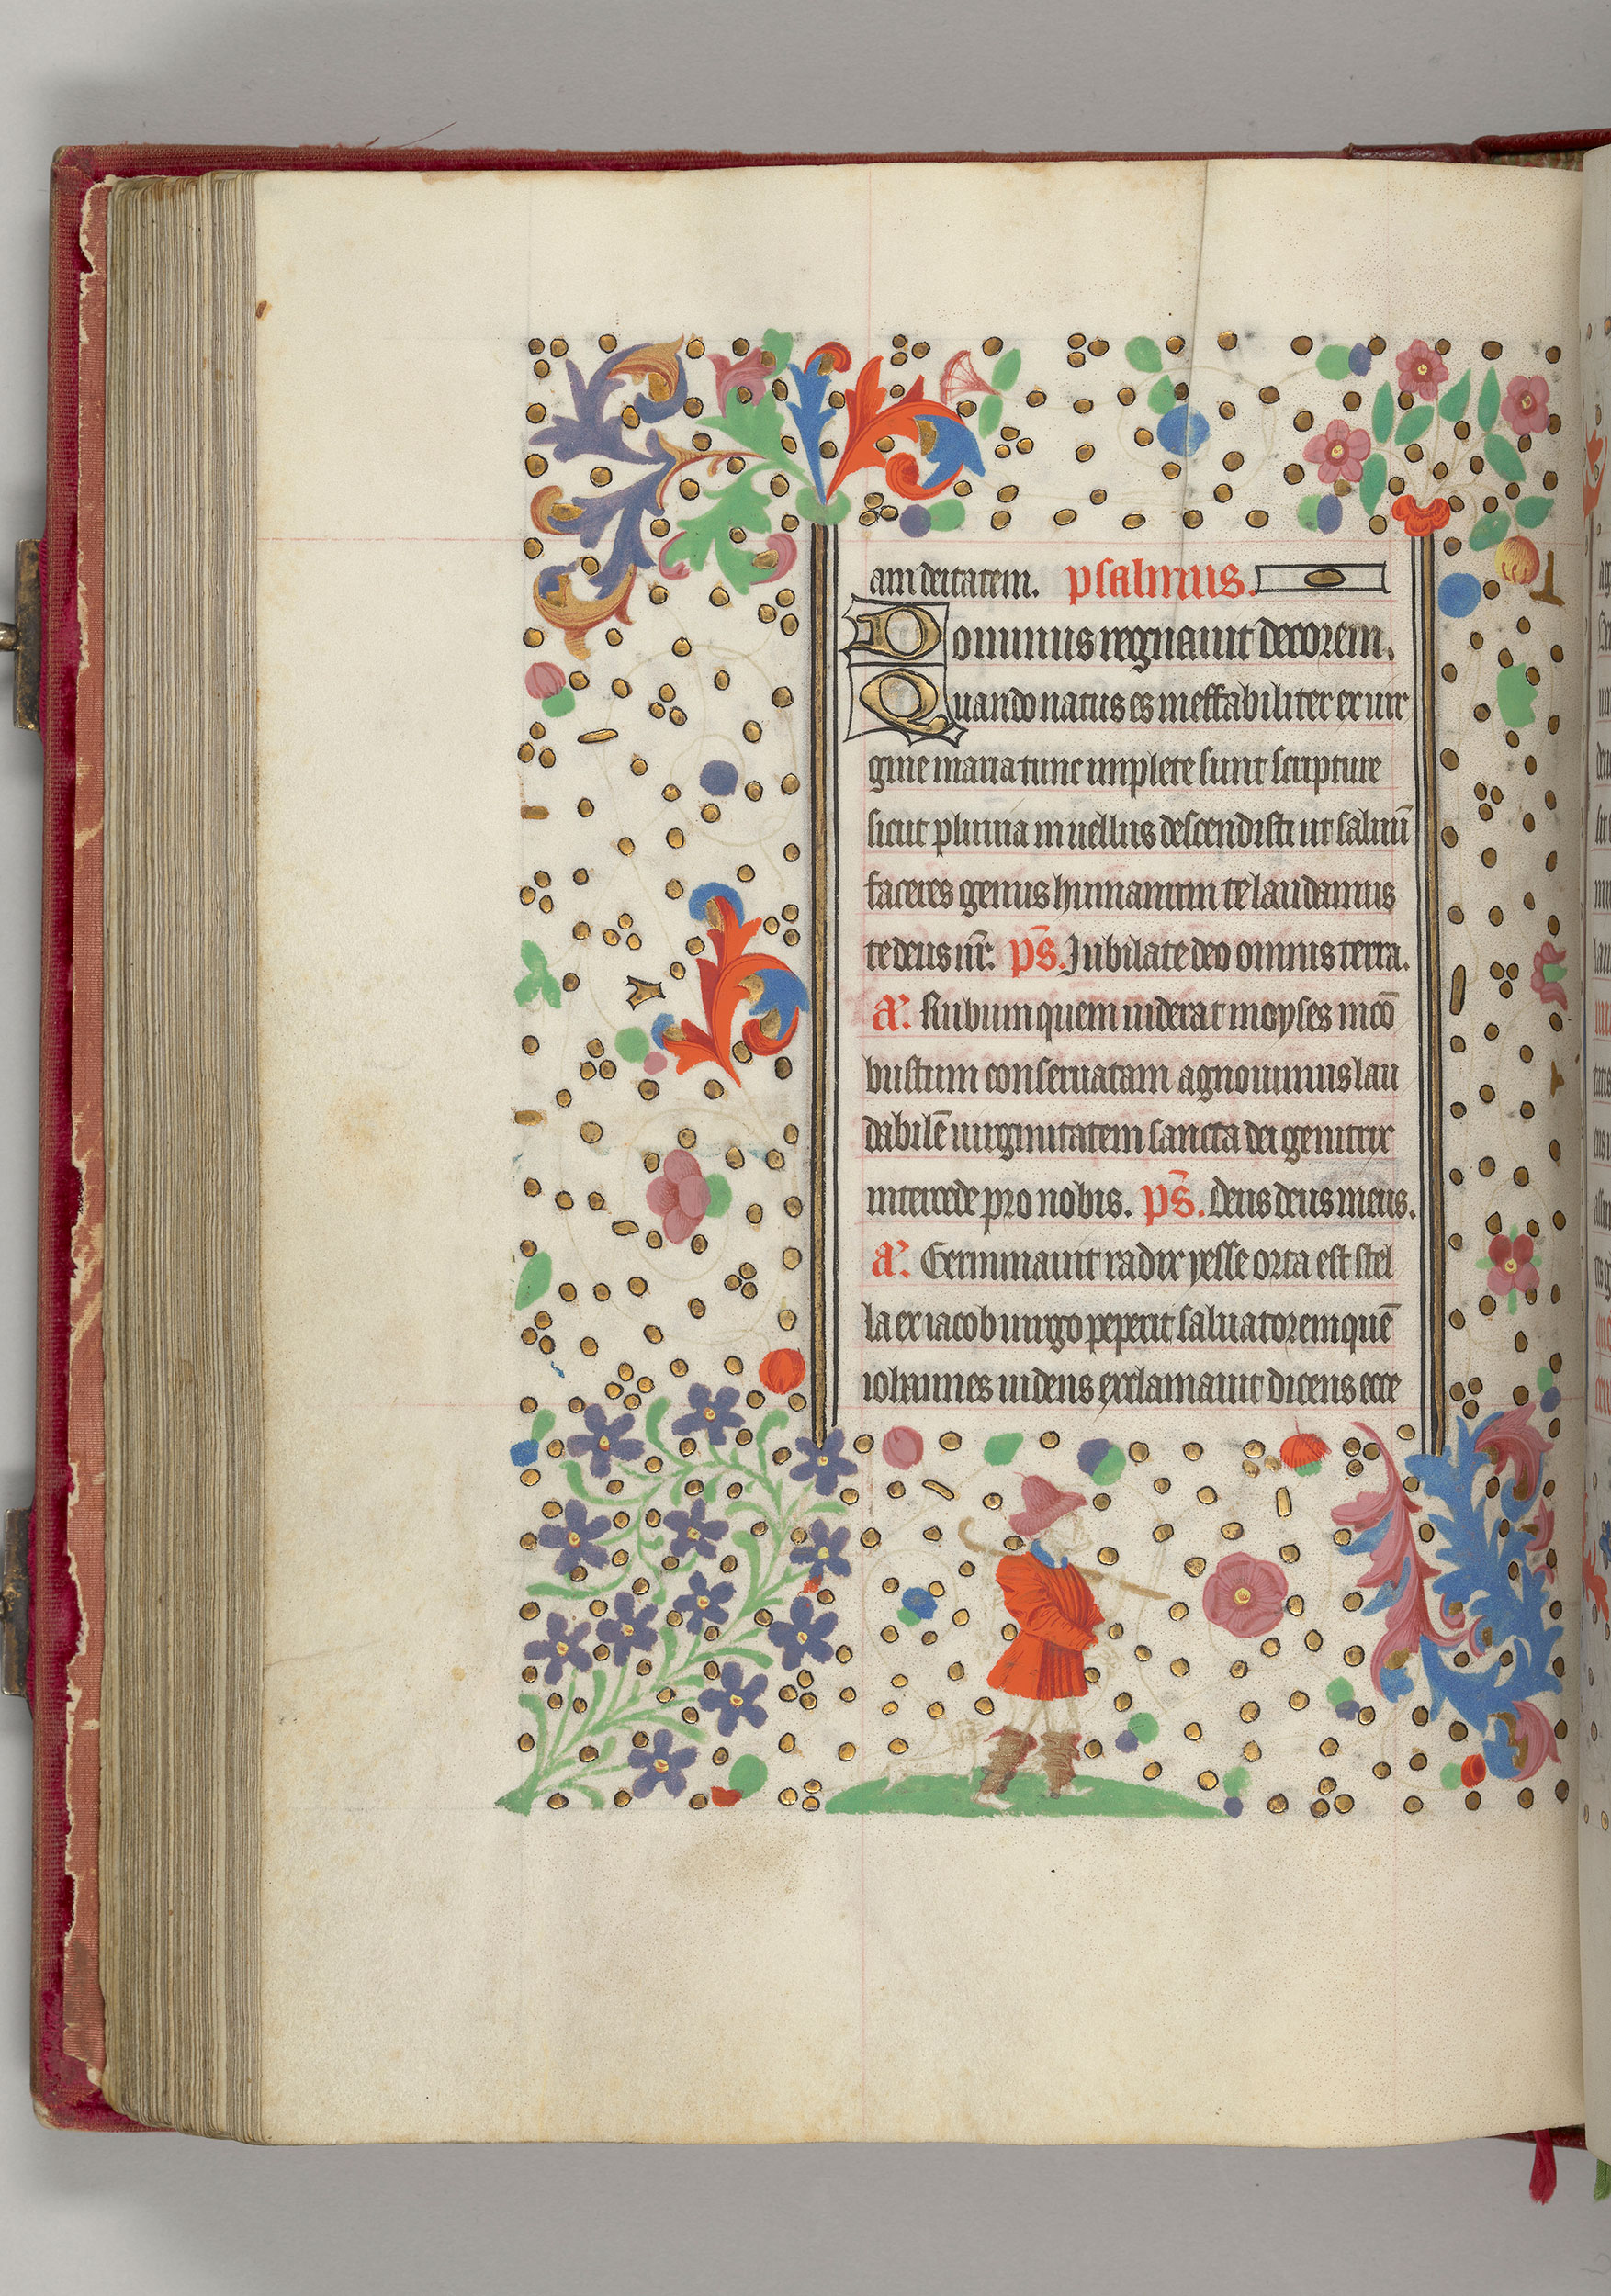 am deitatem. psalmus.
Dominus regnauit decorem.
Quando natus es ineffabiliter ex uir
gine maria tunc implete sunt scripture
sicut pluuia in uellus descendisti ut saluū
faceres genus humanum te laudamus
te deus nr̄. ps̄. Iubilate deo omnis terra.
a᷒. Rubum quem uiderat moyses incō
bustum conseruatam agnouimus lau
dabilē uirginitatem sancta dei genitrix
intercede pro nobis. ps̄. Deus deus meus.
a᷒. Germinauit radix yesse orta est stel
la ex iacob uirgo peperit saluatorem quē
iohannes uidens exclamauit dicens ecce